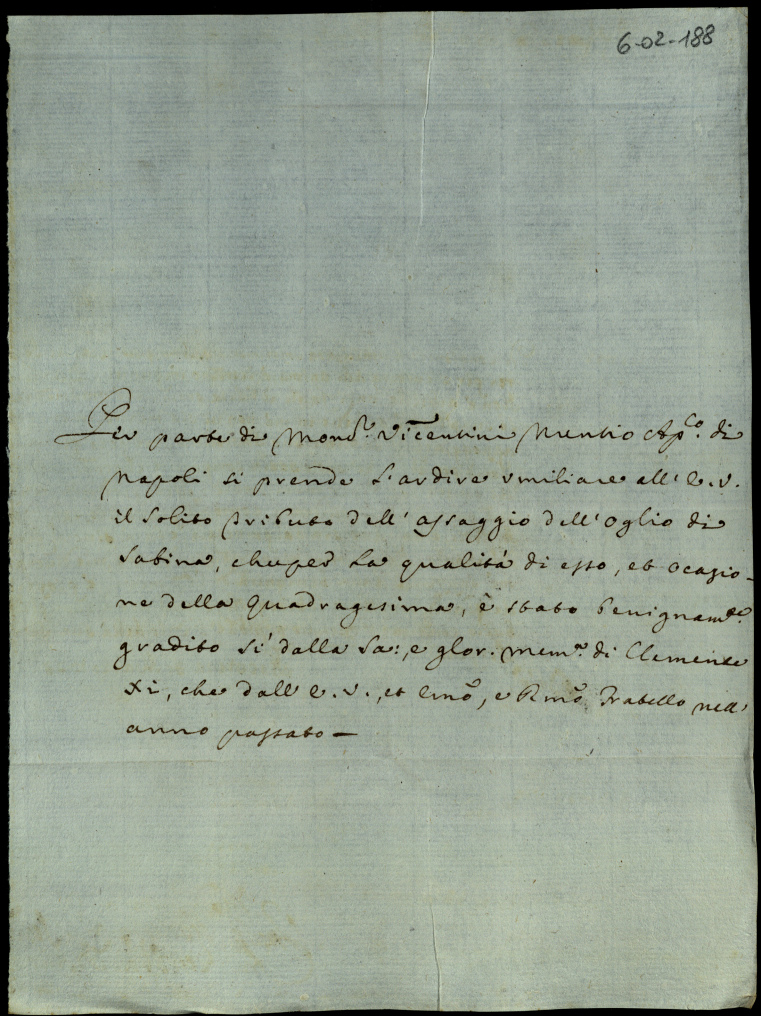 6-02-188
Per parte di Mons.r Vicentini Nuntio Ap.co di
Napoli si prende l'ardire umiliare all'E. V.
il solito tributo dell'assaggio dell'Oglio di
Sabina, che per la qualità di esso, et ocasio-
ne della Quadragesima, è stato benignam.te
gradito sì dalla Sa:, e glor. mem.a di Clemente
XI, che dall'E. V., et Emo, e Rmo Fratello nell'
anno passato —